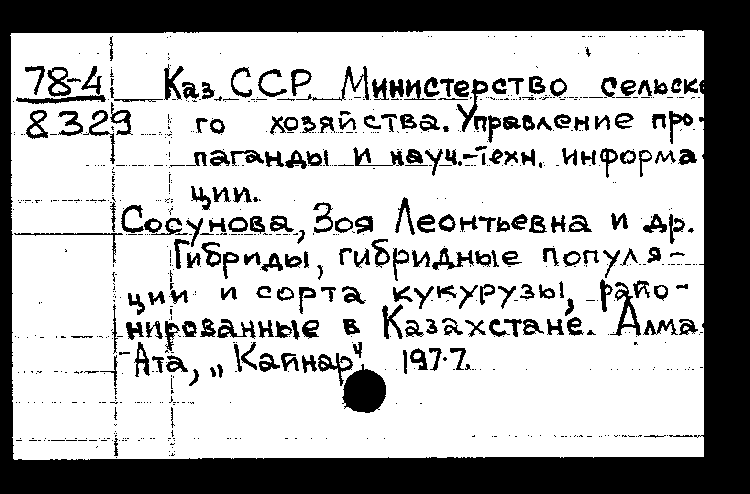 78-4 Каз. ССР. Министерство сельско
8329 го хозяйства. Управление про-
паганды и науч.-техн. информа-
ции.
Сосунова, Зоя Леонтьевна и др.
Гибриды, гибридные популя-
ции и сорта кукурузы, райо-
нированные в Казахстане. Алма-
-Ата, „Кайнар" 1977.